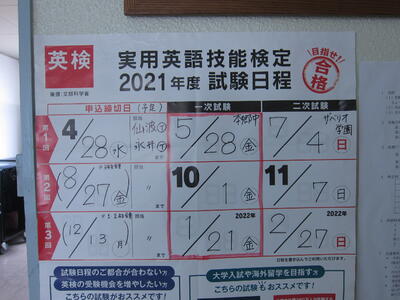 英検
実用英語技能検定
2021年度 試験日程
目指せ!
合格
後援:文部科学省
申込締切日(予定)
一次試験
二次試験
第1回
4/28(水)
担当
まで
5/28(金)
7/4(日)
学園
第2回
8/27(金)
担当
〃
まで
10/1(金)
11/7(日)
第3回
12/13(月)
担当
〃
まで
2022年
1/21(金)
2022年
2/27(日)
試験日程のご都合が合わない方
英検の受験機会を増やしたい方
こちらの試験がおススメです!
大学入試や海外留学を目指す方
こちらの試験もおススメです!